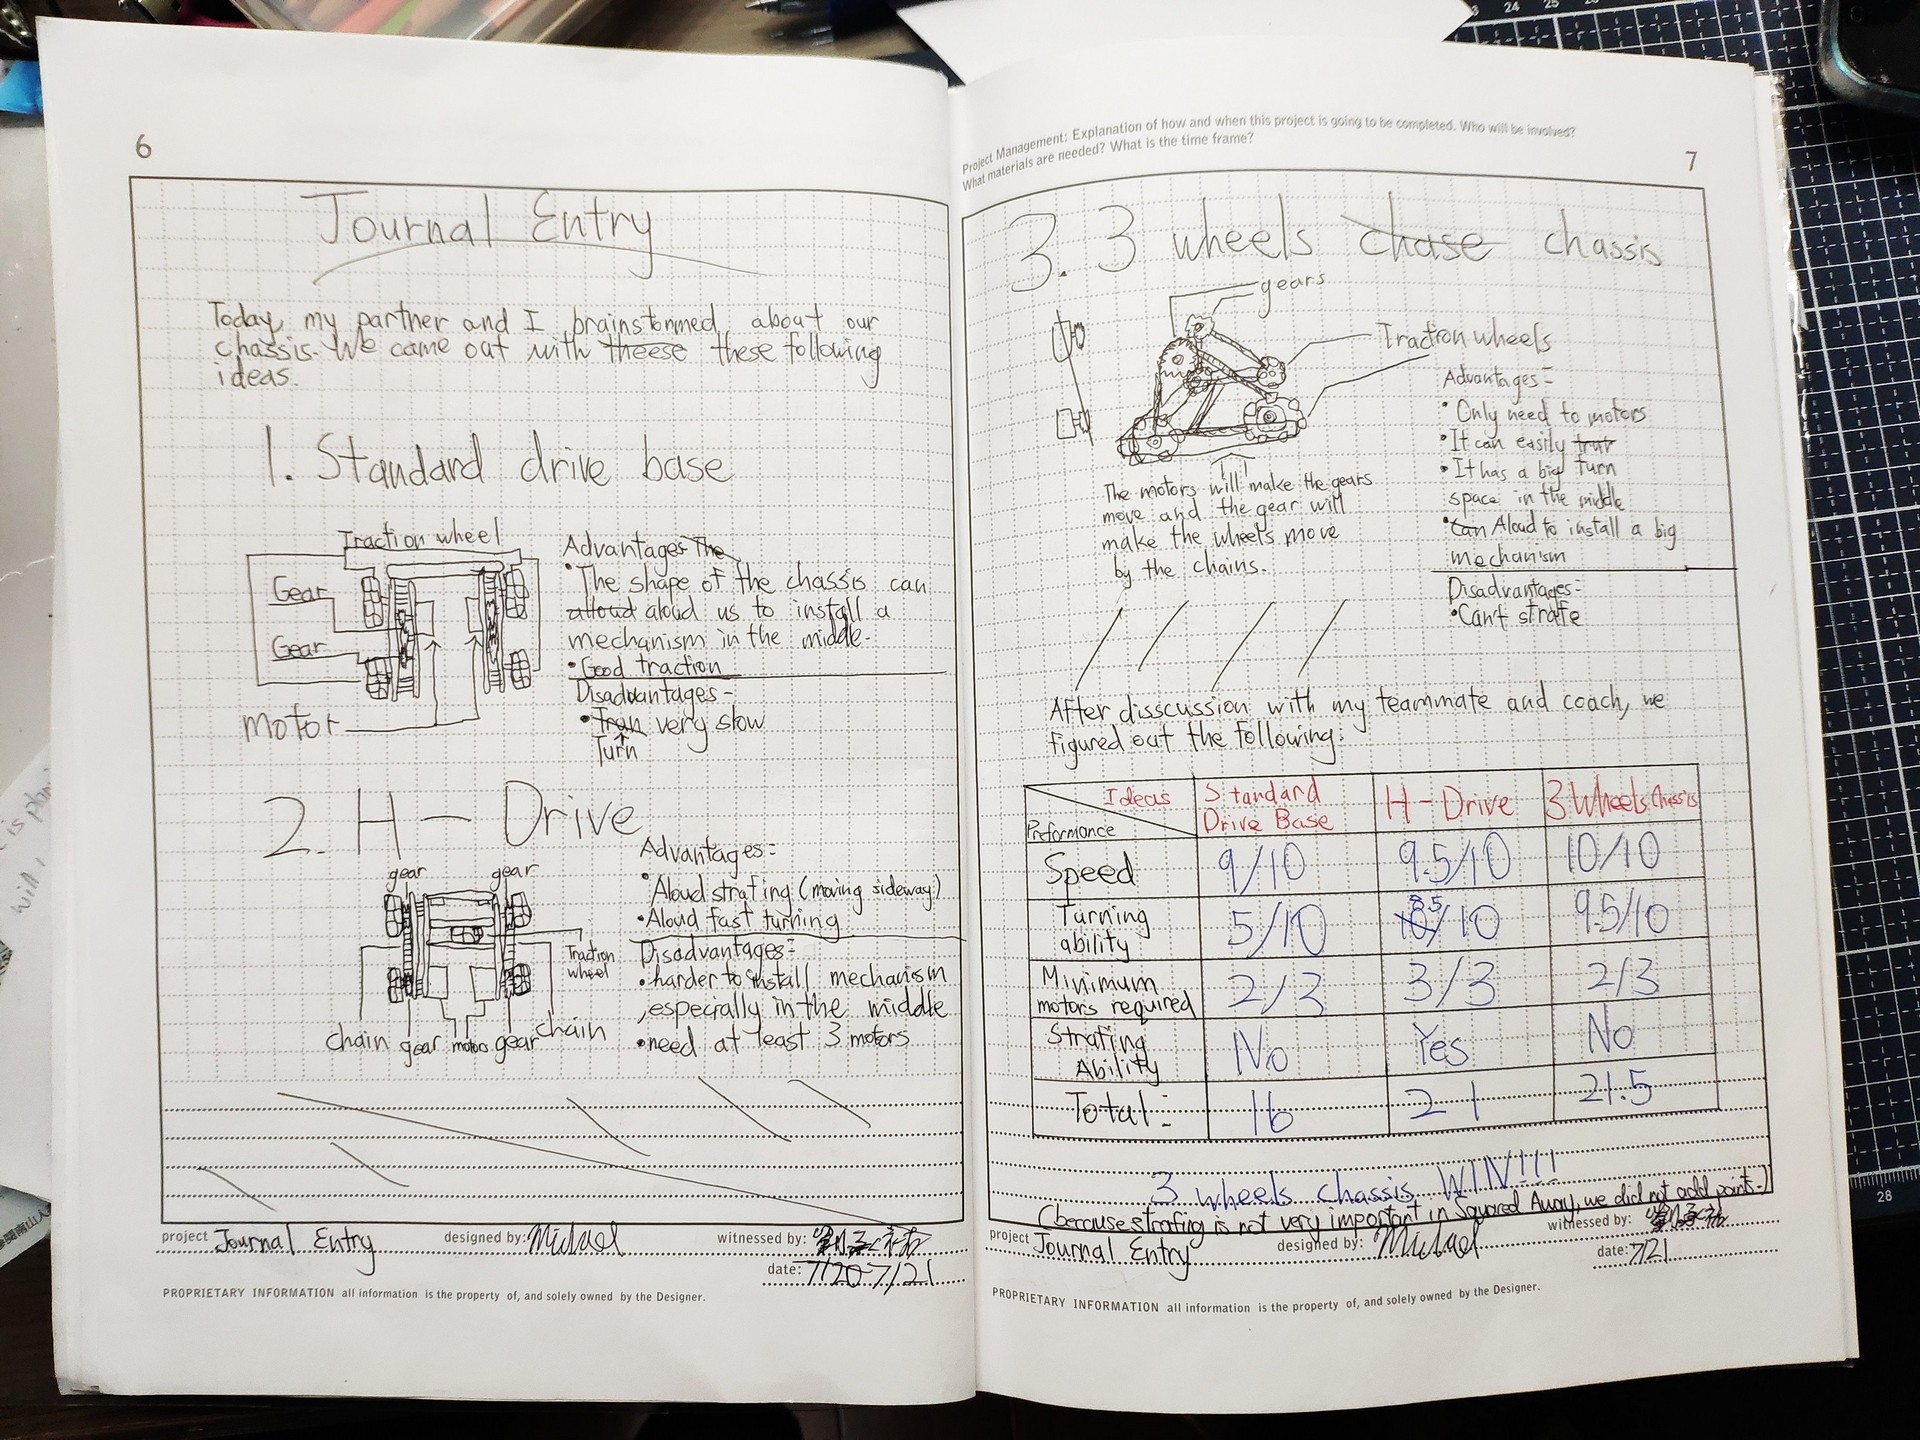 6
Journal Entry
Today, my partner and I brainstormed about our
chassis. We came out with theese these following
ideas.
1. Standard drive base
Traction wheel
Gear
Gear
motor
Advantages The
• The shape of the chassis can
alloud aloud us to install a
mechanism in the middle.
• Good traction
Disadvantages -
• Tran very slow
Turn
2. H-Drive
gear gear
Traction
wheel
chain gear motors gear chain
Advantages:
• Aloud strafing (moving sideway)
• Aloud fast turning
Disadvantages:
• harder to install mechanism
, especially in the middle
• need at least 3 motors
project Journal Entry designed by: Michael witnessed by:
date: 7/20-7/21
PROPRIETARY INFORMATION all information is the property of, and solely owned by the Designer.
Project Management: Explanation of how and when this project is going to be completed. Who will be involved?
What materials are needed? What is the time frame?
7
3. 3 wheels chase chassis
gears
Traction wheels
The motors will make the gears
move and the gear will
make the wheels move
by the chains.
Advantages:
• Only need to motors
• It can easily
• It has a big turn
space in the middle
• Can Aloud to install a big
mechanism
Disadvantages:
• Can't strafe
After disscussion with my teammate and coach, we
figured out the following:
Ideas Standard H-Drive 3 Wheels Chassis
Preformance Drive Base
Speed 9/10 9.5/10 10/10
Turning 5/10 8.5/10 9.5/10
ability
Minimum 2/3 3/3 2/3
motors required
Strafing No Yes No
Ability
Total: 16 21 21.5
3 wheels chassis WIN!!!
(because strafing is not very important in Squared Away, we did not add points.)
project Journal Entry designed by: Michael witnessed by:
date: 7/21
PROPRIETARY INFORMATION all information is the property of, and solely owned by the Designer.
24 25
28